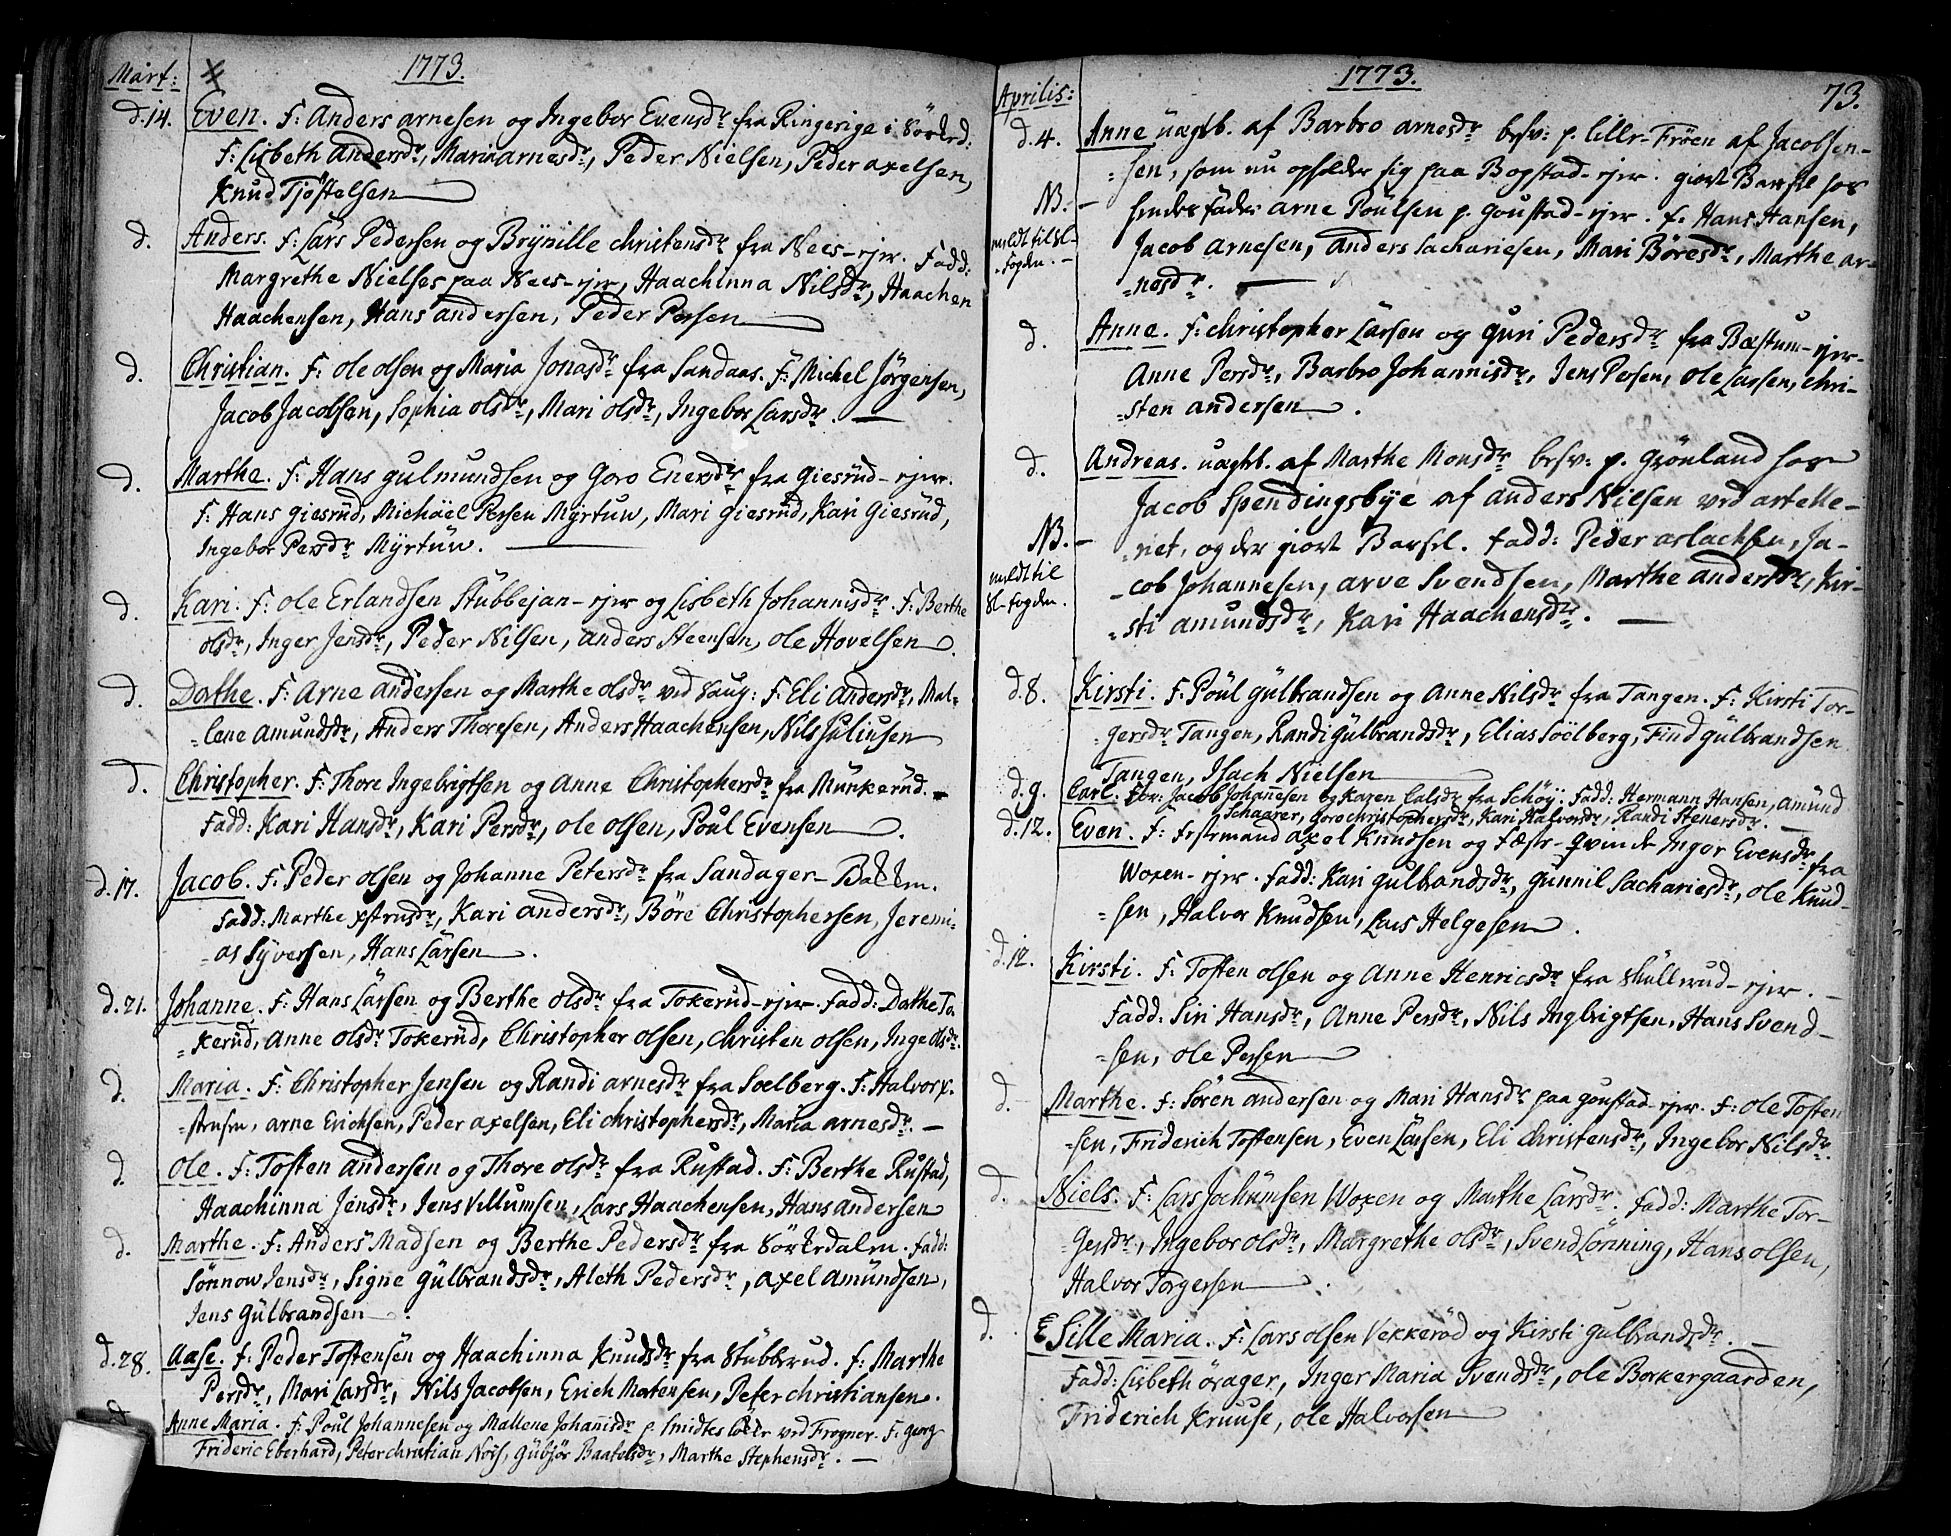 Mart: 1773.
d. 14. Even. F: Anders Arnesen og Ingebor Evensdr fra Ringerige i Sörkd:
F: Lisbeth Andersdr, Maria Arnesdr, Peder Nielsen, Peder Axelsen,
Knud Tjöstelsen
d. Anders. F: Lars Pedersen og Brynille Christensdr fra Nees-ejer. Fadd:
Margrethe Nielses paa Nees-ejer, Haachinna Nilsdr, Haachen
Haachensen, Hans Andersen, Peder Persen
d. Christian. F: Ole Olsen og Maria Jonasdr fra Sandaas. F: Michel Jörgensen,
Jacob Jacobsen, Sophia Olsdr, Mari Olsdr, Ingebor Larsdr.
d. Marthe. F: Hans Gulmundsen og Goro Enersdr fra Giesrud-ejer.
F: Hans Giesrud, Michäel Persen Myrtuw, Mari Giesrud, Kari Giesrud,
Ingebor Persdr Myrtuw.
d. Kari. F: Ole Erlandsen Stubbejan-ejer og Lisbeth Johannisdr. F: Berthe
Olsdr, Inger Jensdr, Peder Nilsen, Anders Steensen, Ole Hovelsen.
d. Dorthe. F: Arne Andersen og Marthe Olsdr ved Saug: F: Eli Andersdr, Mal-
-lene Amundsdr, Anders Thoresen, Anders Haachensen, Nils Juliusen
d. Christopher. F: Thore Ingebrigtsen og Anne Christophersdr fra Munkerud.
Fadd: Kari Hansdr, Kari Persdr, Ole Olsen, Poul Evensen.
d. 17. Jacob. F: Peder Olsen og Johanne Petersdr fra Sandager-Bakken.
Fadd: Marthe Kari Andersdr, Böre Christophersen, Jeremi-
-as Syversen, Hans Larsen.
d. 21. Johanne. F: Hans Larsen og Berthe Olsdr fra Tokerud-ejer. Fadd: Dorthe To-
-kerud, Anne Olsdr Tokerud, Christopher Olsen, Christen Olsen, Inge Olsdr.
d. Maria. F: Christopher Jensen og Randi Arnesdr fra Soelberg. F: Halvor
Arne Erichsen, Peder Axelsen, Eli Christophersdr, Maria Arnesdr.
d. Ole. F: Tosten Andersen og Thore Olsdr fra Rustad. F: Berthe Rustad,
Haachinna Jensdr, Jens Villumsen, Lars Haachensen, Hans Andersen
d. Marthe. F: Anders Madsen og Berthe Pedersdr fra Sörkedalen. Fadd:
Sönnow Jensdr, Signe Gulbrandsdr, Aleth Pedersdr, Axel Amundsen,
Jens Gulbrandsen.
d. 28. Aase. F: Peder Tostensen og Haachinna Knudsdr fra Stubberud. F: Marthe
Persdr, Mari Larsdr, Nils Jacobsen, Erich Mortensen, Peter Christiansen.
Anne Maria. F: Poul Johannesen og Mallene Johannisdr p. Smidtes löcke ved Frogner. F: Georg
Frideric Eberhard, Peter Christian Gubjör Baatolsdr, Marthe Stephensdr.
Aprilis: 1773. 73.
d. 4. Anne uægtb. af Barbro Arnesdr besv: p. lille-Fröen af Jacob Jen-
-sen, som nu opholder sig paa Bogstad-ejer. giort Barsel hos
NB. hendes fader Arne Poulsen p. Goustad-ejer. F. Hans Hansen,
meldt til Sl-
-fogden. Jacob Arnesen, Anders Sachariesen, Mari Böresdr, Marthe Ar-
-nesdr.
d. Anne. F: Christopher Larsen og Guri Pedersdr fra Bæstum-ejer-
Anne Persdr, Barbro Johannisdr, Jens Persen, Ole Larsen, Chri-
-sten Andersen.
d. Andreas. uægtb. af Marthe Monsdr besv: p. Grönland hos
Jacob Spendingsbye af Anders Nilsen ved artelle-
NB. -riet, og der giort Barsel. Fadd: Peder Aslachsen, Ja-
meldt til
Sl-fogden. -cob Johannesen, Arve Svendsen, Marthe Andersdr, Kir-
-sti Amundsdr, Kari Haachensdr.
d. 8. Kirsti. F: Poul Gulbrandsen og Anne Nilsdr fra Tangen. F: Kirsti Tor-
-gersdr Tangen, Randi Gulbrandsdr, Elias Soelberg, Find Gulbrandsen
Tangen, Isach Nielsen
d. 9. Carl. For: Jacob Johannesen og Karen Calsdr fra Schöy. Fadd: Hermann Hansen, Amund
Schaarer, Goro Christophersdr, Kari Halvorsdr, Randi Stenersdr.
d. 12. Even. F: festemand Axel Knudsen og fæste-qvinde Inger Evensdr fra
Woxen-ejer. Fadd: Kari Gulbrandsdr, Gunnil Sachariesdr, Ole Knud-
-sen, Halvor Knudsen, Lars Helgesen.
d. 12. Kirsti. F: Tosten Olsen og Anne Henricsdr fra Skullerud-ejer.
Fadd: Siri Hansdr, Anne Persdr, Nils Ingbrigtsen, Hans Svend-
-sen, Ole Persen
d. Marthe. F: Sören Andersen og Mari Hansdr paa Goustad-ejer. F: Ole Tosten
-sen, Friderich Tostensen, Even Larsen, Eli Christensdr, Ingebor Nilsdr.
d. Niels. F: Lars Jochumsen Woxen og Marthe Larsdr. Fadd: Marthe Tor-
-gersdr, Ingebor Olsdr, Margrethe Olsdr, Svend Lörining, Hans Olsen,
Halvor Torgersen.
d. Sille Maria. F: Lars Olsen Vekkeröd og Kirsti Gulbrandsdr.
Fadd: Lisbeth Örager, Inger Maria Svendsdr, Ole Borkergaarden,
Friderich Kruuse, Ole Halvorsen